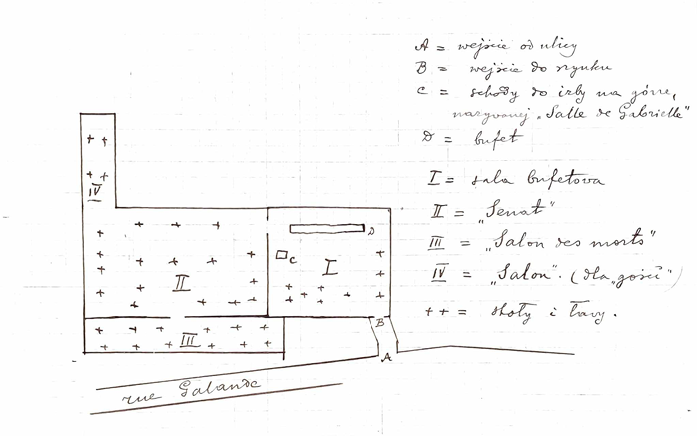 A = wejście od ulicy
B = wejście do szynku
C = schody do izby na górze,
nazywanej „Salle de Gabrielle"
D = bufet
I = sala bufetowa
II = „Senat"
III = „Salon des morts"
IV = „Salon". (dla „gości")
++ = stoły i ławy.
IV
D
C
I
II
III
B
A
rue Galande